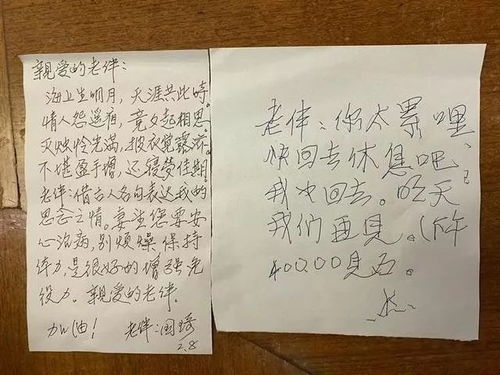 親爱的老伴：
海上生明月，天涯共此時。
情人怨遥夜，竟夕起相思
灭烛怜光满，披衣觉露滋。
不堪盈手赠，还寝梦佳期
老伴：借古人名句表达我的
思念之情。要您要安
心治病，别烦燥保持
体力，是很好的增强免
疫力。親爱的老伴，
加油！ 老伴：国琦
2.8
老伴：你太累哩
快回去休息吧、
我也回去。明天
我们再見。(下午
40000見